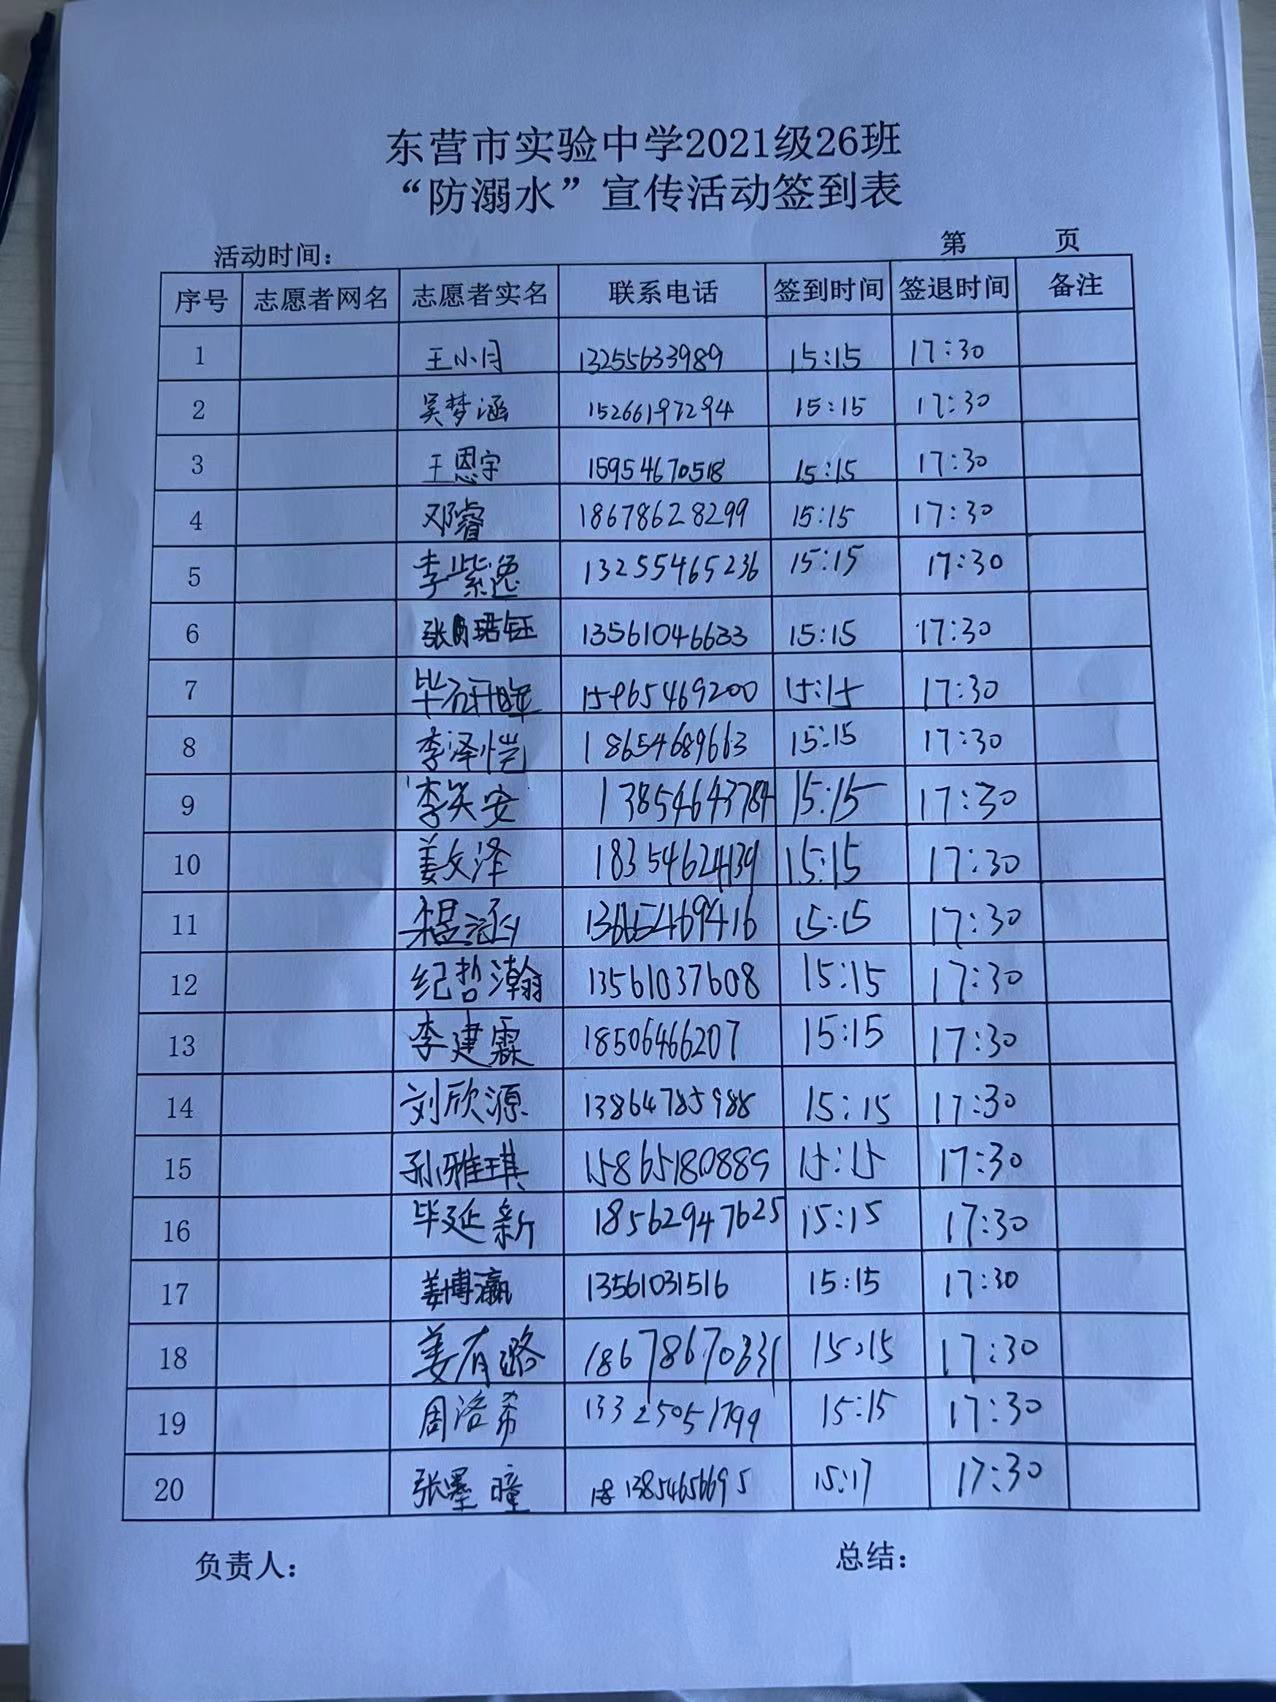 东营市实验中学2021级26班
“防溺水”宣传活动签到表
活动时间： 第 页
序号 志愿者网名 志愿者实名 联系电话 签到时间 签退时间 备注
1 王小月 13255633989 15:15 17:30
2 吴梦涵 15266197294 15:15 17:30
3 王恩宇 15954670518 15:15 17:30
4 邓睿 18678628299 15:15 17:30
5 李紫逸 13255465236 15:15 17:30
6 13561046633 15:15 17:30
7 毕研晖 15965469200 15:15 17:30
8 李泽恺 18654689663 15:15 17:30
9 李笑安 13854643784 15:15 17:30
10 姜文泽 18354624139 15:15 17:30
11 15:15 17:30
12 纪哲瀚 13561037608 15:15 17:30
13 李建霖 18506466207 15:15 17:30
14 刘欣源 13864785988 15:15 17:30
15 孙雅琪 15865180889 15:15 17:30
16 毕延新 18562947625 15:15 17:30
17 姜博瀛 13561031516 15:15 17:30
18 姜有璐 18678670331 15:15 17:30
19 周洺希 13325051799 15:15 17:30
20 张墨瞳 13854656695 15:17 17:30
负责人： 总结：